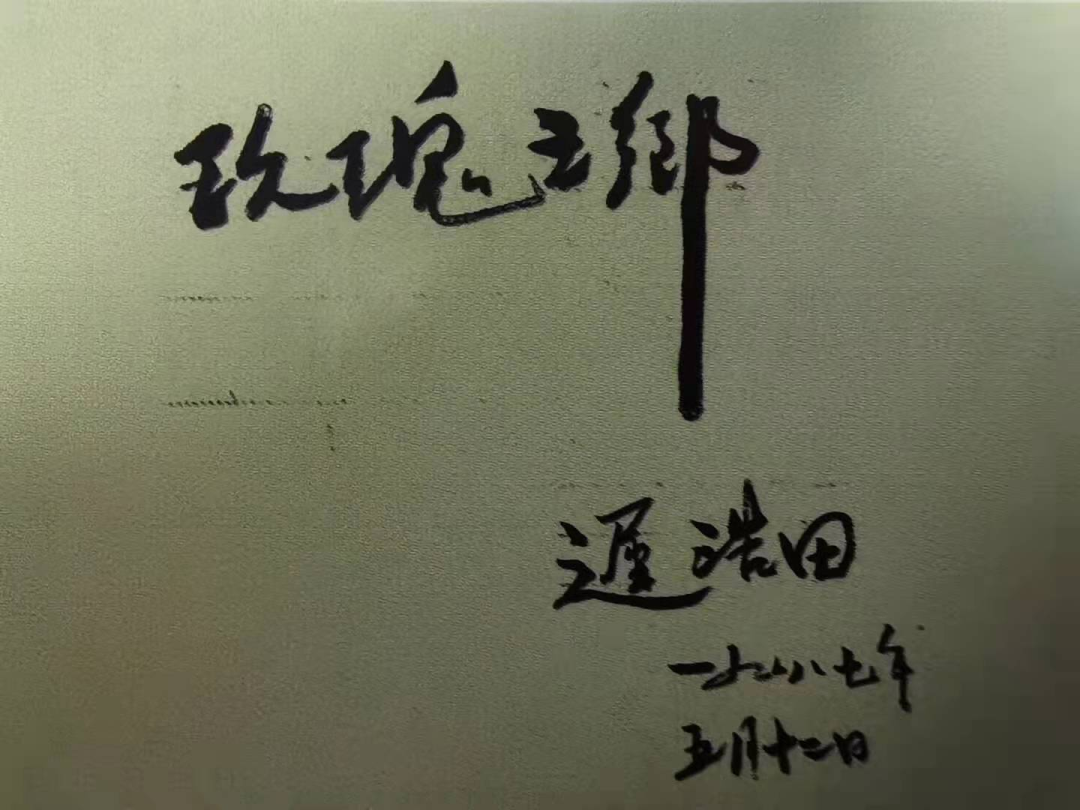 玫瑰之鄉
遲浩田
一九八七年
五月十二日